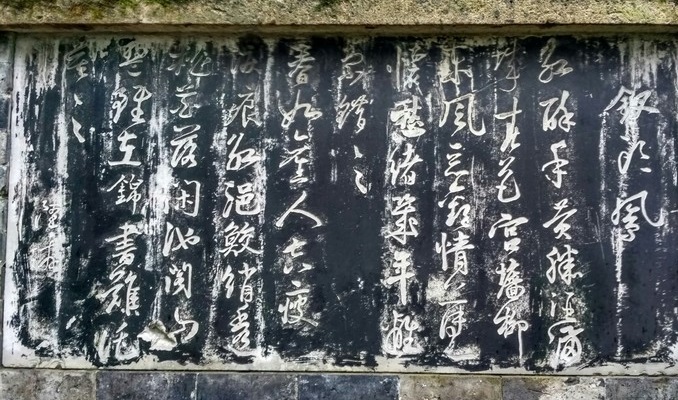 釵頭鳳
紅酥手黃縢酒滿
城春色宮墻柳
東風惡歡情薄一
懷愁緒幾年離
索錯々々
春如舊人空瘦
淚痕紅浥鮫綃透
桃花落閒池閣山
盟雖在錦書難托
莫々々
陸游